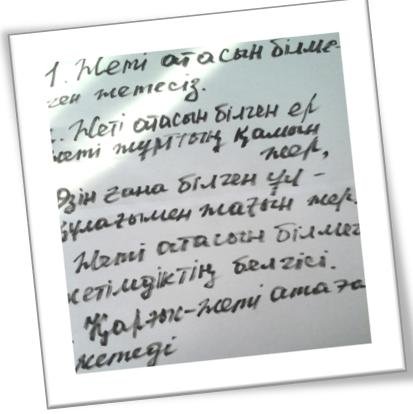 1. Жеті атасын білме-
ген жетесіз.
2. Жеті атасын білген ер
жеті жұрттың қамын
жер,
Өзін ғана білген ұл -
құлағымен жағын жер.
Жеті атасын білмеу
жетімдіктің белгісі.
Қарғыс-жеті атаға
жетеді